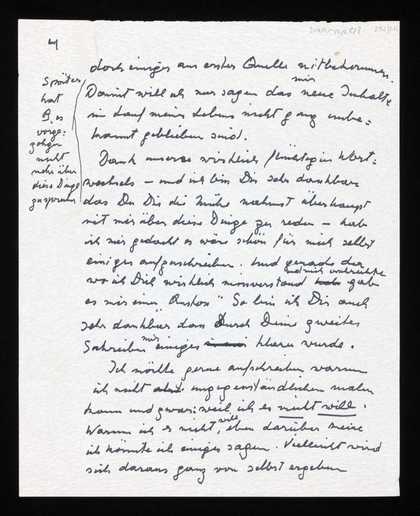 4
doch einiges aus erster Quelle mitbekommen.
Damit will ich nur sagen das mir neue Inhalte
im Lauf meines Lebens nicht ganz unbe=
kannt geblieben sind.
Später
hat
B. es
vorge=
zogen
nicht
mehr über
diese Dinge
zu sprechen
Dank unseres wirklich Wort=
wechsels – und ich bin Dir sehr dankbar
das Du Dir die Mühe nahmst überhaupt
mit mir über diese Dinge zu reden – hab
ich mir gedacht es wäre schön für mich selbst
einiges aufzuschreiben. Und gerade da
wo ich Dich wirklich missverstand und mich
es mir einen So bin ich Dir auch
sehr dankbar dass Durch Deine zweites
Schreiben mir einiges klarer wurde.
Ich möchte gerne aufschreiben warum
ich nicht ungegenständlichen malen
kann und zwar: weil ich es nicht will.
Warum ich es nicht will, eben darüber meine
ich könnte ich einiges sagen. Vielleicht wird
sich daraus ganz von selbst ergeben